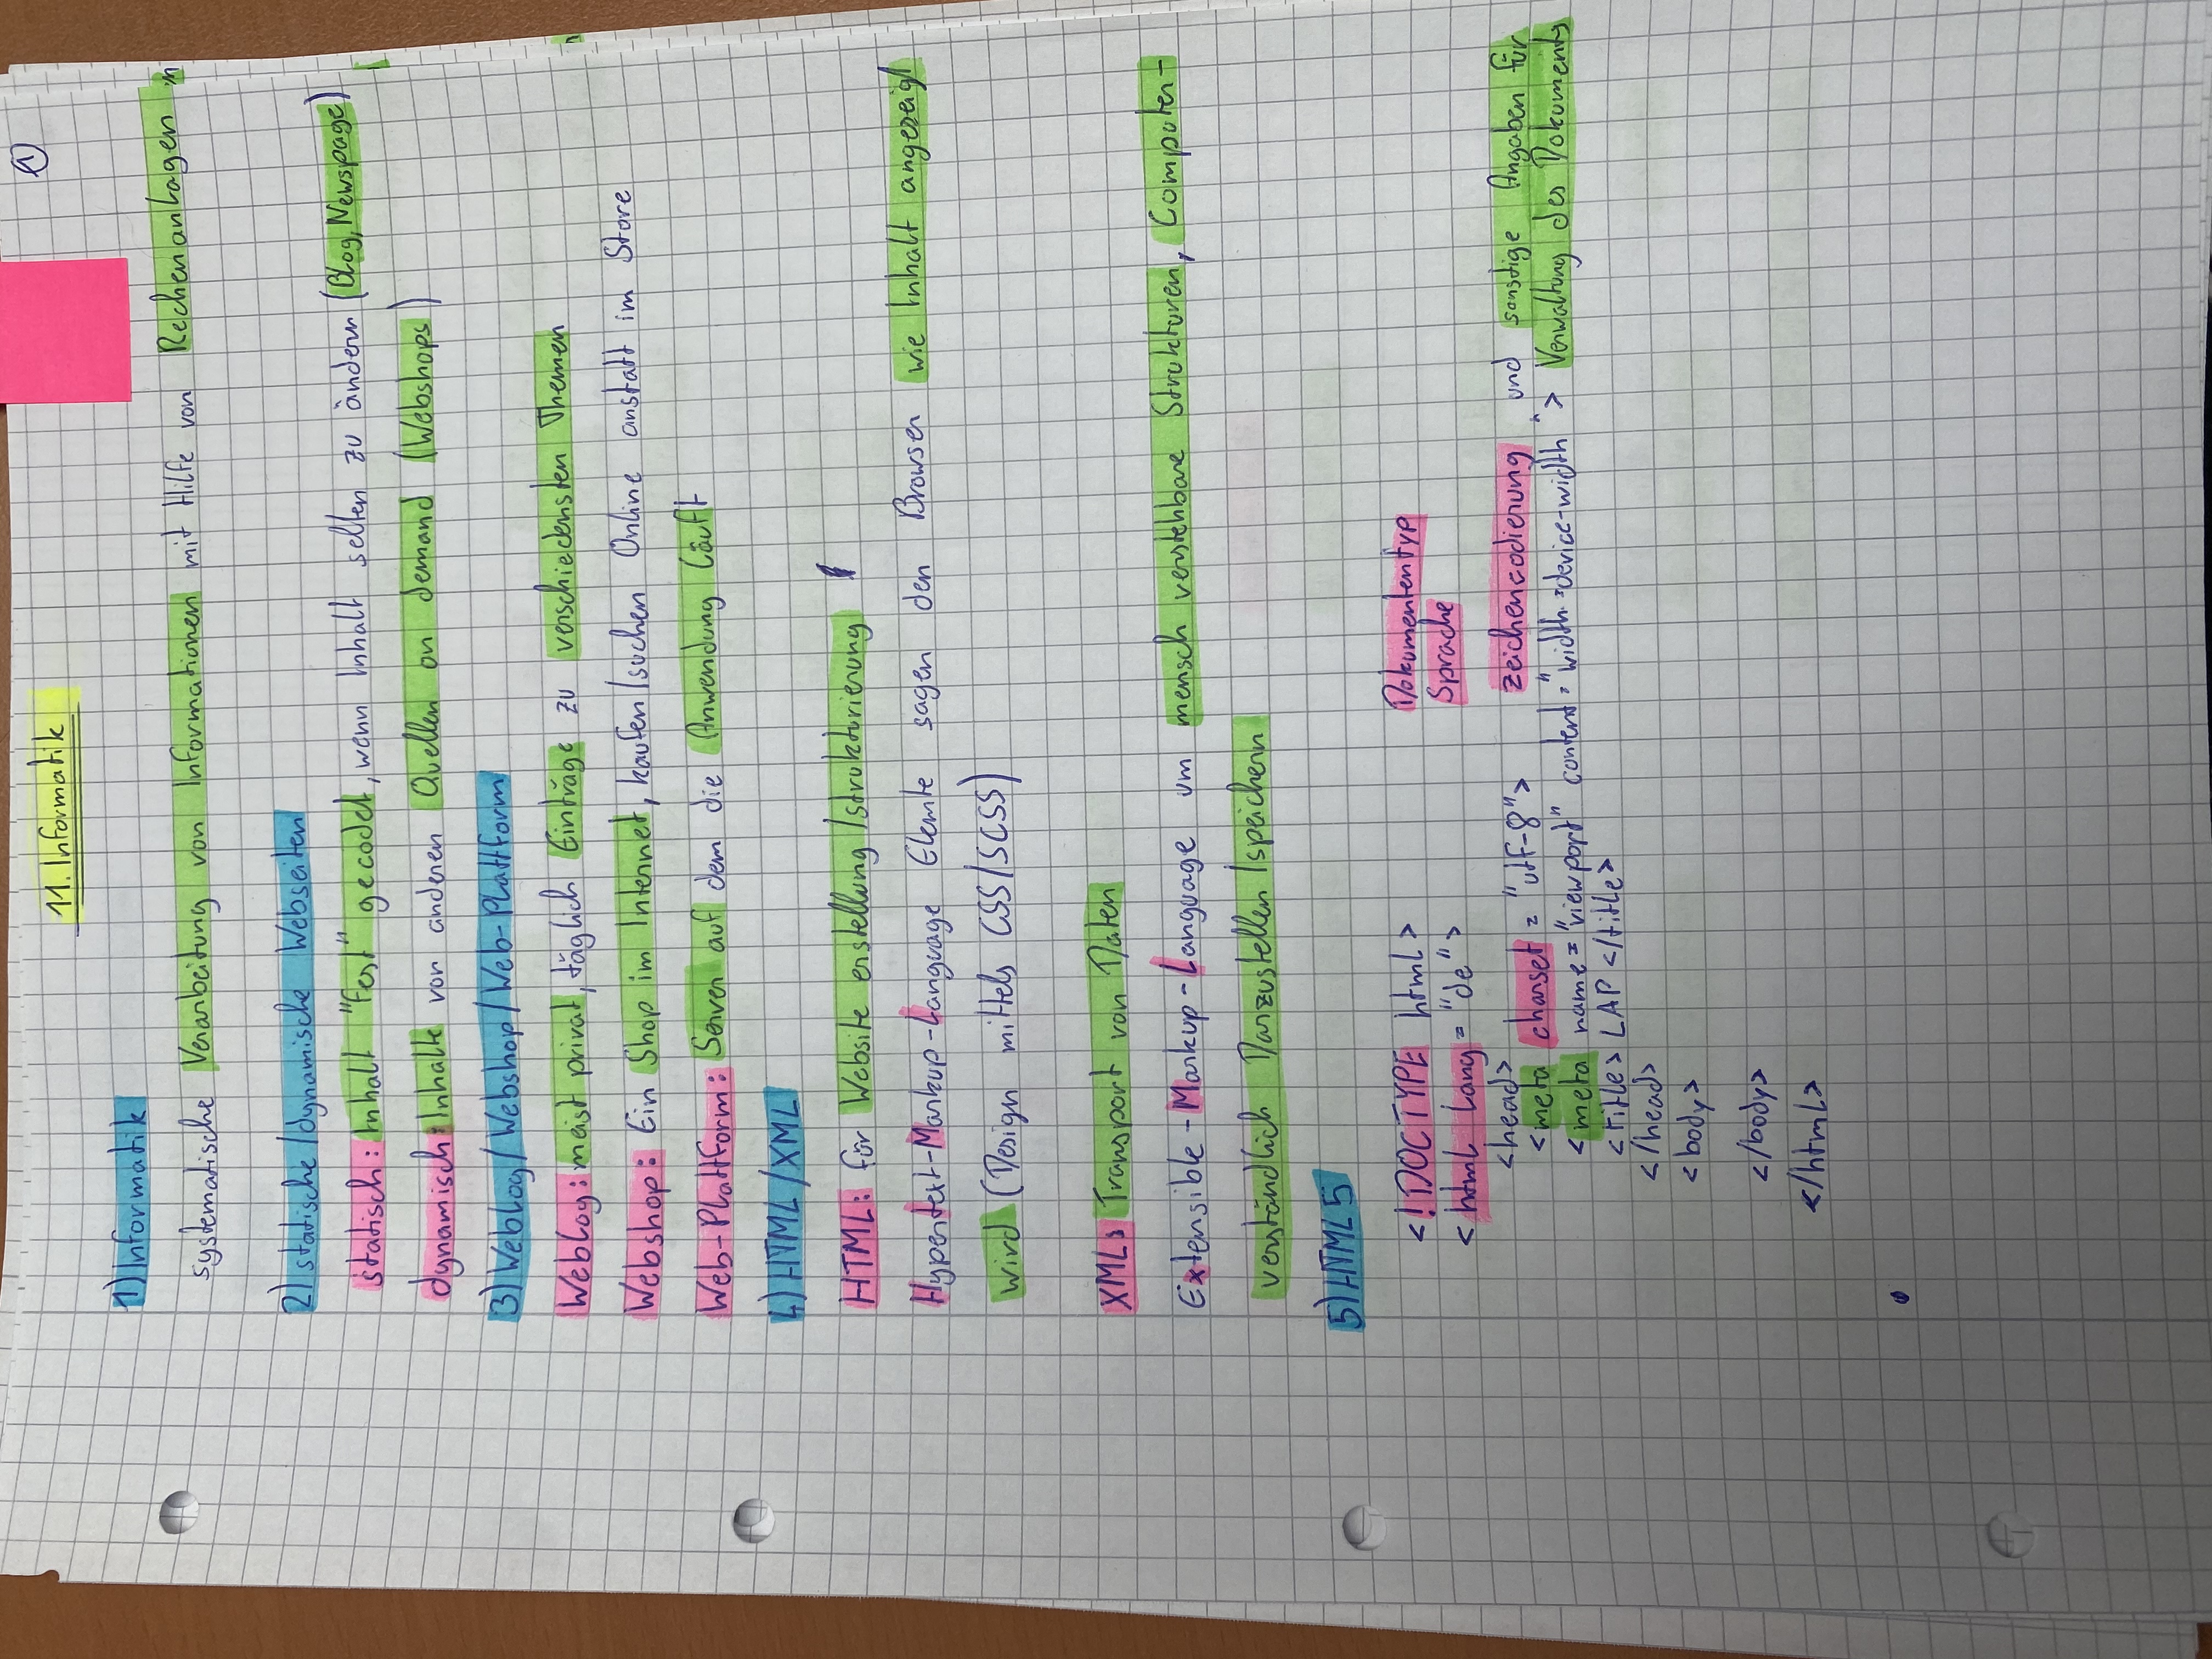 ①
11. Informatik
1) Informatik
systematische Verarbeitung von Informationen mit Hilfe von Rechenanlagen
2) statische/dynamische Webseiten
statisch: Inhalt "fest" gecodet, wenn Inhalt selten zu ändern (Blog, Newspage)
dynamisch: Inhalte von anderen Quellen on demand (Webshops)
3) Weblog/Webshop/Web-Plattform
Weblog: meist privat, täglich Einträge zu verschiedensten Themen
Webshop: Ein Shop im Internet, kaufen/suchen Online anstatt im Store
Web-Plattform: Server auf dem die Anwendung läuft
4) HTML/XML
HTML: für Website erstellung/strukturierung
Hypertext-Markup-Language Elemte sagen den Browser wie Inhalt angezeigt
wird (Design mittels CSS/SCSS)
XML: Transport von Daten
Extensible-Markup-Language um mensch verstehbare Strukturen, Computer-
verständlich Darzustellen/speichern
5) HTML5
<!DOCTYPE html> Dokumententyp
<html lang="de"> Sprache
<head>
<meta charset = "utf-8"> Zeichencodierung und sonstige Angaben für
<meta name="viewport" content="width=device-width"> Verwaltung des Dokuments
<title> LAP </title>
</head>
<body>
</body>
</html>